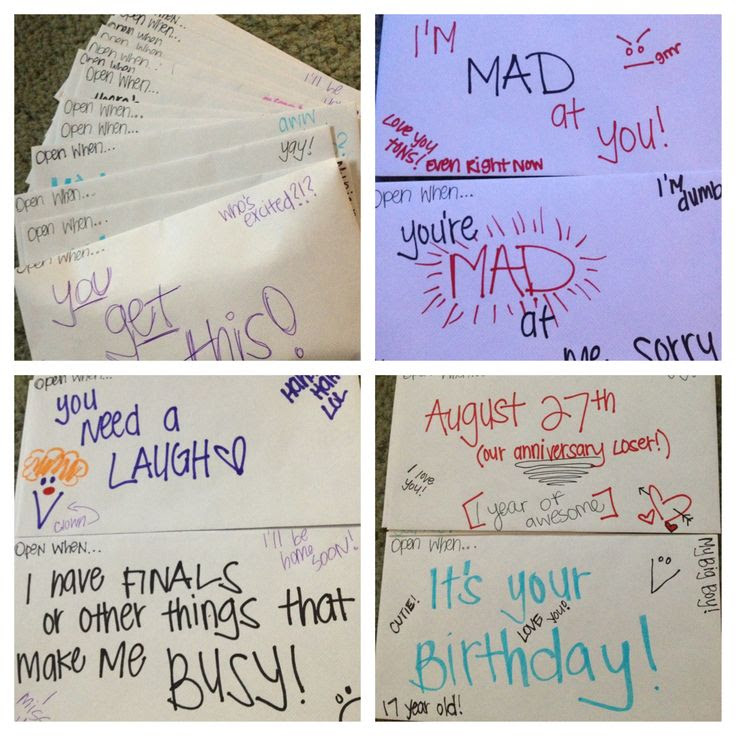 Open When...
Open When
Open When
Open When...
Open When
Open When...
I'll be
Open When...
Open When...
aww
Open When...
yay!
?
Open When...
Open When...
who's
excited?!?
Open When...
you
get
this!
I'M
MAD
at
you!
grrr
Love you
tons! Even Right Now
Open When...
I'M
dumb
you're
MAD
at
me, sorry
Open When...
you
Need a
LAUGH
Haha
Haha
LOL
clown
Open When...
I'll be
home
soon!
I have FINALS
or other things that
make me BUSY!
Miss
August 27th
(our anniversary Loser!)
I love
you!
[1 year of
awesome]
Open When...
It's your
Birthday!
CUTIE!
LOVE YOU!
My Big Boy!
17 year old!